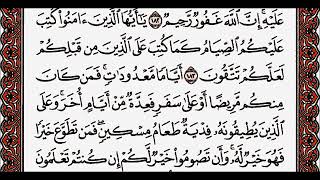 عَلَيْهِ إِنَّ ٱللَّهَ غَفُورٌ رَّحِيمٌ ١٨٢ يَٰٓأَيُّهَا ٱلَّذِينَ ءَامَنُوا۟ كُتِبَ
عَلَيْكُمُ ٱلصِّيَامُ كَمَا كُتِبَ عَلَى ٱلَّذِينَ مِن قَبْلِكُمْ
لَعَلَّكُمْ تَتَّقُونَ ١٨٣ أَيَّامًا مَّعْدُودَٰتٍ فَمَن كَانَ
مِنكُم مَّرِيضًا أَوْ عَلَىٰ سَفَرٍ فَعِدَّةٌ مِّنْ أَيَّامٍ أُخَرَ وَعَلَى
ٱلَّذِينَ يُطِيقُونَهُۥ فِدْيَةٌ طَعَامُ مِسْكِينٍ فَمَن تَطَوَّعَ خَيْرًا
فَهُوَ خَيْرٌ لَّهُۥ وَأَن تَصُومُوا۟ خَيْرٌ لَّكُمْ إِن كُنتُمْ تَعْلَمُونَ